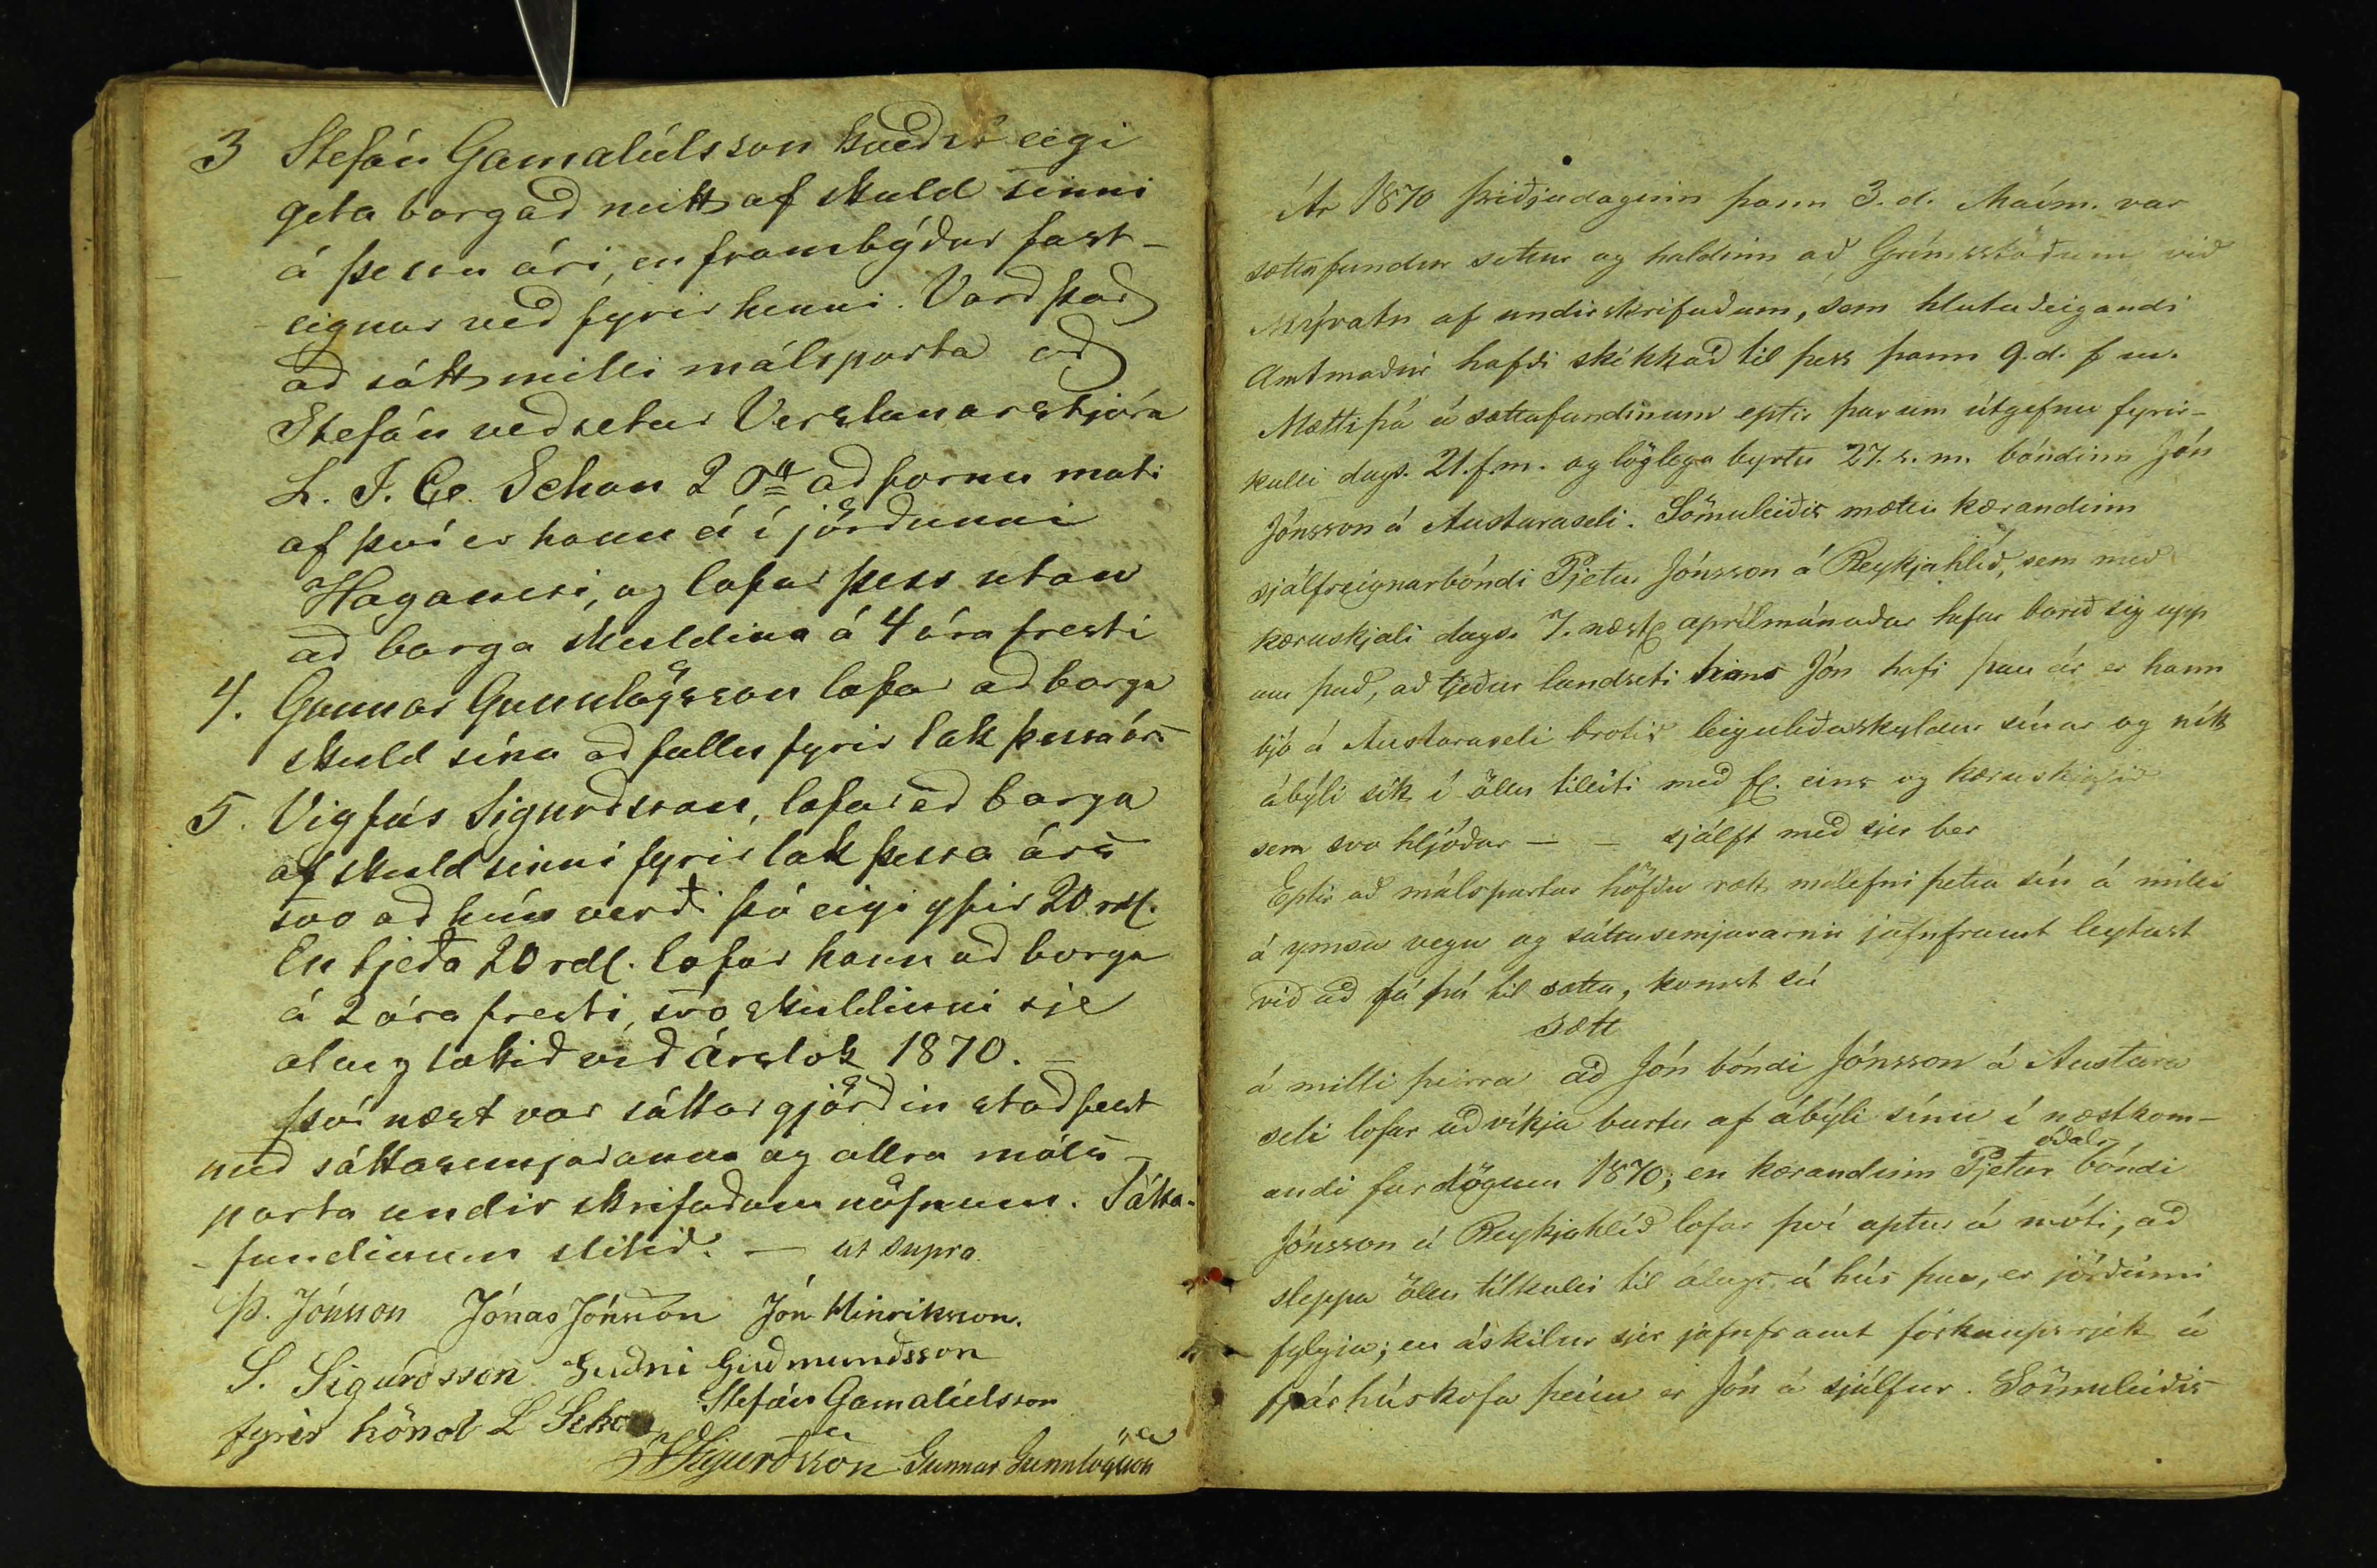 3 Stefán Gamalíelsson kveðst eigi
geta borgað neitt af skuld sinni
á þessu ári, en frambýður fast-
eignar veð fyrir henni. Varð það
að sátt milli málsparta að
Stefán veðsetur Verslunarstjóra
L. J. C. Schou 2 að fornu mati
af því er hann á í jörðunni
Haganesi, og lofar þess utan
að borga skuldina á 4 ára fresti
4. Gunnar Gunnlögsson lofar að borga
skuld sína að fullu fyrir lok þessa árs
5. Vigfús Sigurðsson, lofar að borga
af skuld sinni fyrir lok þessa árs
svo að hún verði þá eigi yfir 20 rdl.
En tjeða 20 rdl. lofar hann að borga
á 2 ára fresti, svo skuldinni sje
alveg lokið við árslok 1870. –
Því næst var sáttargjörðin staðfest
með sáttasemjaranna og allra máls-
parta undir skrifuðum nöfnum. Sátta-
fundinum slitið. — ut supra
Þ. Jónsson Jónas Jónsson Jón Hinriksson.
S. Sigurðsson Guðni Guðmundsson
fyrir hönd L Schou Stefán Gamalíelsson
VSigurðsson Gunnar Gunnlögsson
Ár 1870 þriðjudaginn þann 3. d. Maím. var
sættafundur settur og haldinn að Grímsstöðum við
Mývatn af undirskrifuðum, sem hlutaðeigandi
Amtmaður hafði skikkað til þess þann 9. d. f m.
Mætti þá á sættafundinum eptir þar um útgefnu fyrir-
kalli dags. 21. f. m. og löglega byrtu 27. s. m. bóndinn Jón
Jónsson á Austaraseli. Sömuleiðis mætti kærandinn
sjálfseignarbóndi Pjetur Jónsson á Reykjahlíð, sem með
kæruskjali dags. 7. næstl aprílmánaðar hefur borið sig upp
um það, að tjeður landseti hans Jón hafi þau ár er hann
bjó á Austaraseli brotið leiguliðaskyldur sínar og nítt
ábýli sitt í öllu tilliti með fl. eins og kæruskjalið
sem svo hljóðar – – sjálft með sjer ber
Eptir að málspartar höfðu rætt málefni þetta sín á milli
á ymsa vegu og sáttasemjararnir jafnframt leytast
við að fá þá til sætta, komst sú
Sætt
á milli þeirra að Jón bóndi Jónsson á Austara
seli lofar að víkja burtu af ábýli sínu í næstkom-
andi fardögum 1870; en kærandinn Pjetur óðals bóndi
Jónsson á Reykjahlíð lofar því aptur á móti, að
sleppa öllu tilkalli til álags á hús þau, er jörðunni
fylgja; en áskilur sjer jafnframt forkaupsrjett á
fjárhúskofa þeim er Jón á sjálfur. Sömuleiðis